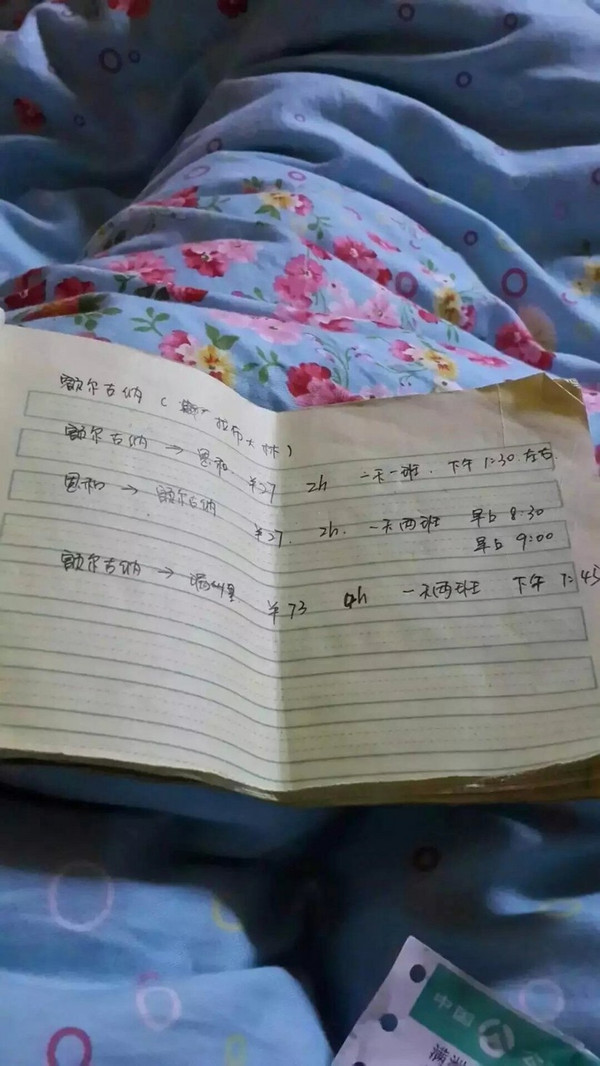 额尔古纳（拉布大林）
额尔古纳 → 恩和 ¥27 2h 一天一班. 下午 1:30 左右
恩和 → 额尔古纳 ¥27. 2h. 一天两班 早上 8:30
早上 9:00
额尔古纳 → 满洲里 ¥73 4h 一天两班 下午 1:45
中国
满洲